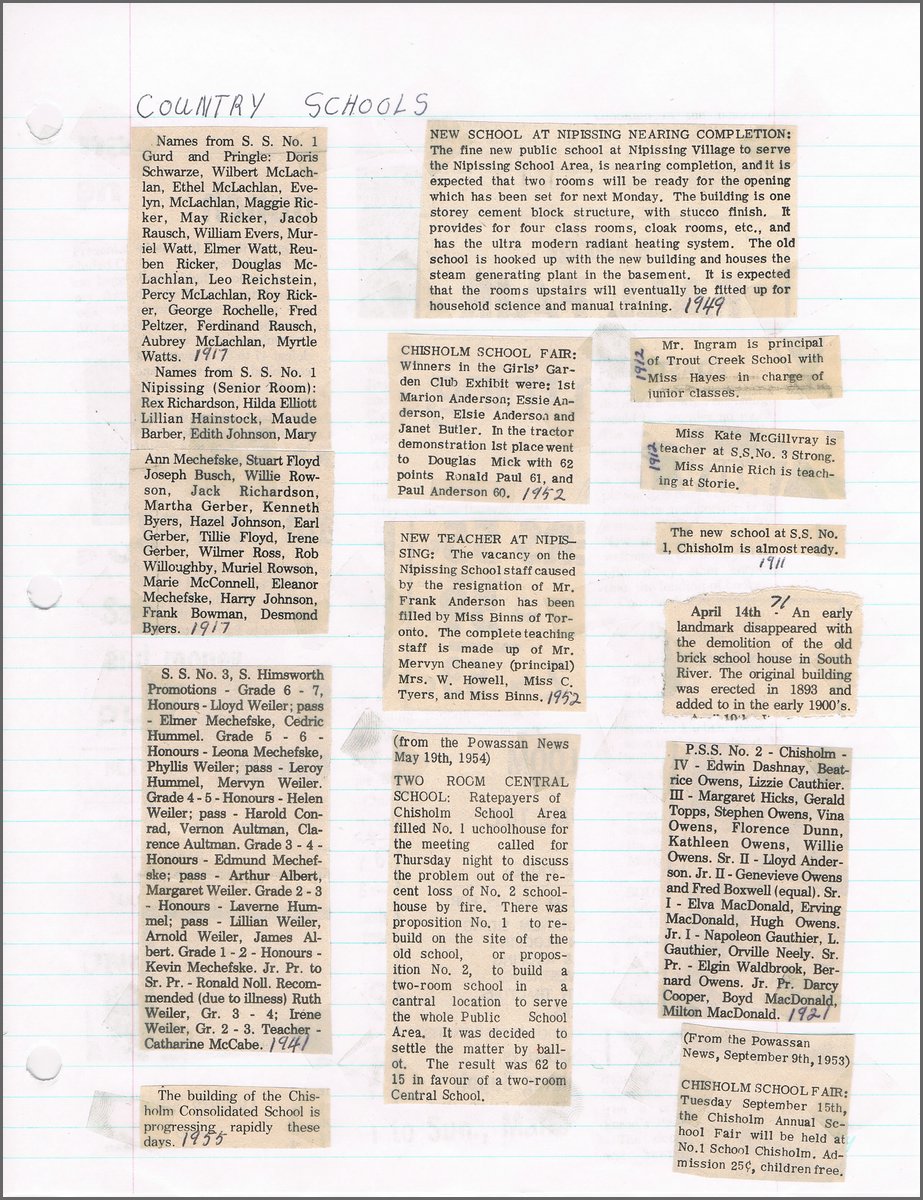 COUNTRY SCHOOLS
Names from S. S. No. 1
Gurd and Pringle: Doris
Schwarze, Wilbert McLach-
lan, Ethel McLachlan, Eve-
lyn, McLachlan, Maggie Ric-
ker, May Ricker, Jacob
Rausch, William Evers, Mur-
iel Watt, Elmer Watt, Reu-
ben Ricker, Douglas Mc-
Lachlan, Leo Reichstein,
Percy McLachlan, Roy Rick-
er, George Rochelle, Fred
Peltzer, Ferdinand Rausch,
Aubrey McLachlan, Myrtle
Watts. 1917
Names from S. S. No. 1
Nipissing (Senior Room):
Rex Richardson, Hilda Elliott
Lillian Hainstock, Maude
Barber, Edith Johnson, Mary
Ann Mechefske, Stuart Floyd
Joseph Busch, Willie Row-
son, Jack Richardson,
Martha Gerber, Kenneth
Byers, Hazel Johnson, Earl
Gerber, Tillie Floyd, Irene
Gerber, Wilmer Ross, Rob
Willoughby, Muriel Rowson,
Marie McConnell, Eleanor
Mechefske, Harry Johnson,
Frank Bowman, Desmond
Byers. 1917
S. S. No. 3, S. Himsworth
Promotions - Grade 6 - 7,
Honours - Lloyd Weiler; pass
- Elmer Mechefske, Cedric
Hummel. Grade 5 - 6 -
Honours - Leona Mechefske,
Phyllis Weiler; pass - Leroy
Hummel, Mervyn Weiler.
Grade 4 - 5 - Honours - Helen
Weiler; pass - Harold Con-
rad, Vernon Aultman, Cla-
rence Aultman. Grade 3 - 4 -
Honours - Edmund Mechef-
ske; pass - Arthur Albert,
Margaret Weiler. Grade 2 - 3
- Honours - Laverne Hum-
mel; pass - Lillian Weiler,
Arnold Weiler, James Al-
bert. Grade 1 - 2 - Honours -
Kevin Mechefske. Jr. Pr. to
Sr. Pr. - Ronald Noll. Recom-
mended (due to illness) Ruth
Weiler, Gr. 3 - 4; Irene
Weiler, Gr. 2 - 3. Teacher -
Catharine McCabe. 1941
The building of the Chis-
holm Consolidated School is
progressing rapidly these
days. 1955
NEW SCHOOL AT NIPISSING NEARING COMPLETION:
The fine new public school at Nipissing Village to serve
the Nipissing School Area, is nearing completion, and it is
expected that two rooms will be ready for the opening
which has been set for next Monday. The building is one
storey cement block structure, with stucco finish. It
provides for four class rooms, cloak rooms, etc., and
has the ultra modern radiant heating system. The old
school is hooked up with the new building and houses the
steam generating plant in the basement. It is expected
that the rooms upstairs will eventually be fitted up for
household science and manual training. 1949
CHISHOLM SCHOOL FAIR:
Winners in the Girls' Gar-
den Club Exhibit were: 1st
Marion Anderson; Essie An-
derson, Elsie Anderson and
Janet Butler. In the tractor
demonstration 1st place went
to Douglas Mick with 62
points Ronald Paul 61, and
Paul Anderson 60. 1952
NEW TEACHER AT NIPIS-
SING: The vacancy on the
Nipissing School staff caused
by the resignation of Mr.
Frank Anderson has been
filled by Miss Binns of Tor-
onto. The complete teaching
staff is made up of Mr.
Mervyn Cheaney (principal)
Mrs. W. Howell, Miss C.
Tyers, and Miss Binns. 1952
(from the Powassan News
May 19th, 1954)
TWO ROOM CENTRAL
SCHOOL: Ratepayers of
Chisholm School Area
filled No. 1 uchoolhouse for
the meeting called for
Thursday night to discuss
the problem out of the re-
cent loss of No. 2 school-
house by fire. There was
proposition No. 1 to re-
build on the site of the
old school, or propos-
ition No. 2, to build a
two-room school in a
cantral location to serve
the whole Public School
Area. It was decided to
settle the matter by ball-
ot. The result was 62 to
15 in favour of a two-room
Central School.
1912
Mr. Ingram is principal
of Trout Creek School with
Miss Hayes in charge of
junior classes.
1912
Miss Kate McGillvray is
teacher at S.S. No. 3 Strong.
Miss Annie Rich is teach-
ing at Storie.
The new school at S.S. No.
1, Chisholm is almost ready.
1911
April 14th 71 - An early
landmark disappeared with
the demolition of the old
brick school house in South
River. The original building
was erected in 1893 and
added to in the early 1900's.
P.S.S. No. 2 - Chisholm -
IV - Edwin Dashnay, Beat-
rice Owens, Lizzie Cauthier.
III - Margaret Hicks, Gerald
Topps, Stephen Owens, Vina
Owens, Florence Dunn,
Kathleen Owens, Willie
Owens. Sr. II - Lloyd Ander-
son. Jr. II - Genevieve Owens
and Fred Boxwell (equal). Sr.
I - Elva MacDonald, Erving
MacDonald, Hugh Owens.
Jr. I - Napoleon Gauthier, L.
Gauthier, Orville Neely. Sr.
Pr. - Elgin Waldbrook, Ber-
nard Owens. Jr. Pr. Darcy
Cooper, Boyd MacDonald,
Milton MacDonald. 1921
(From the Powassan
News, September 9th, 1953)
CHISHOLM SCHOOL FAIR:
Tuesday September 15th,
the Chisholm Annual Sc-
hool Fair will be held at
No.1 School Chisholm. Ad-
mission 25¢, children free.